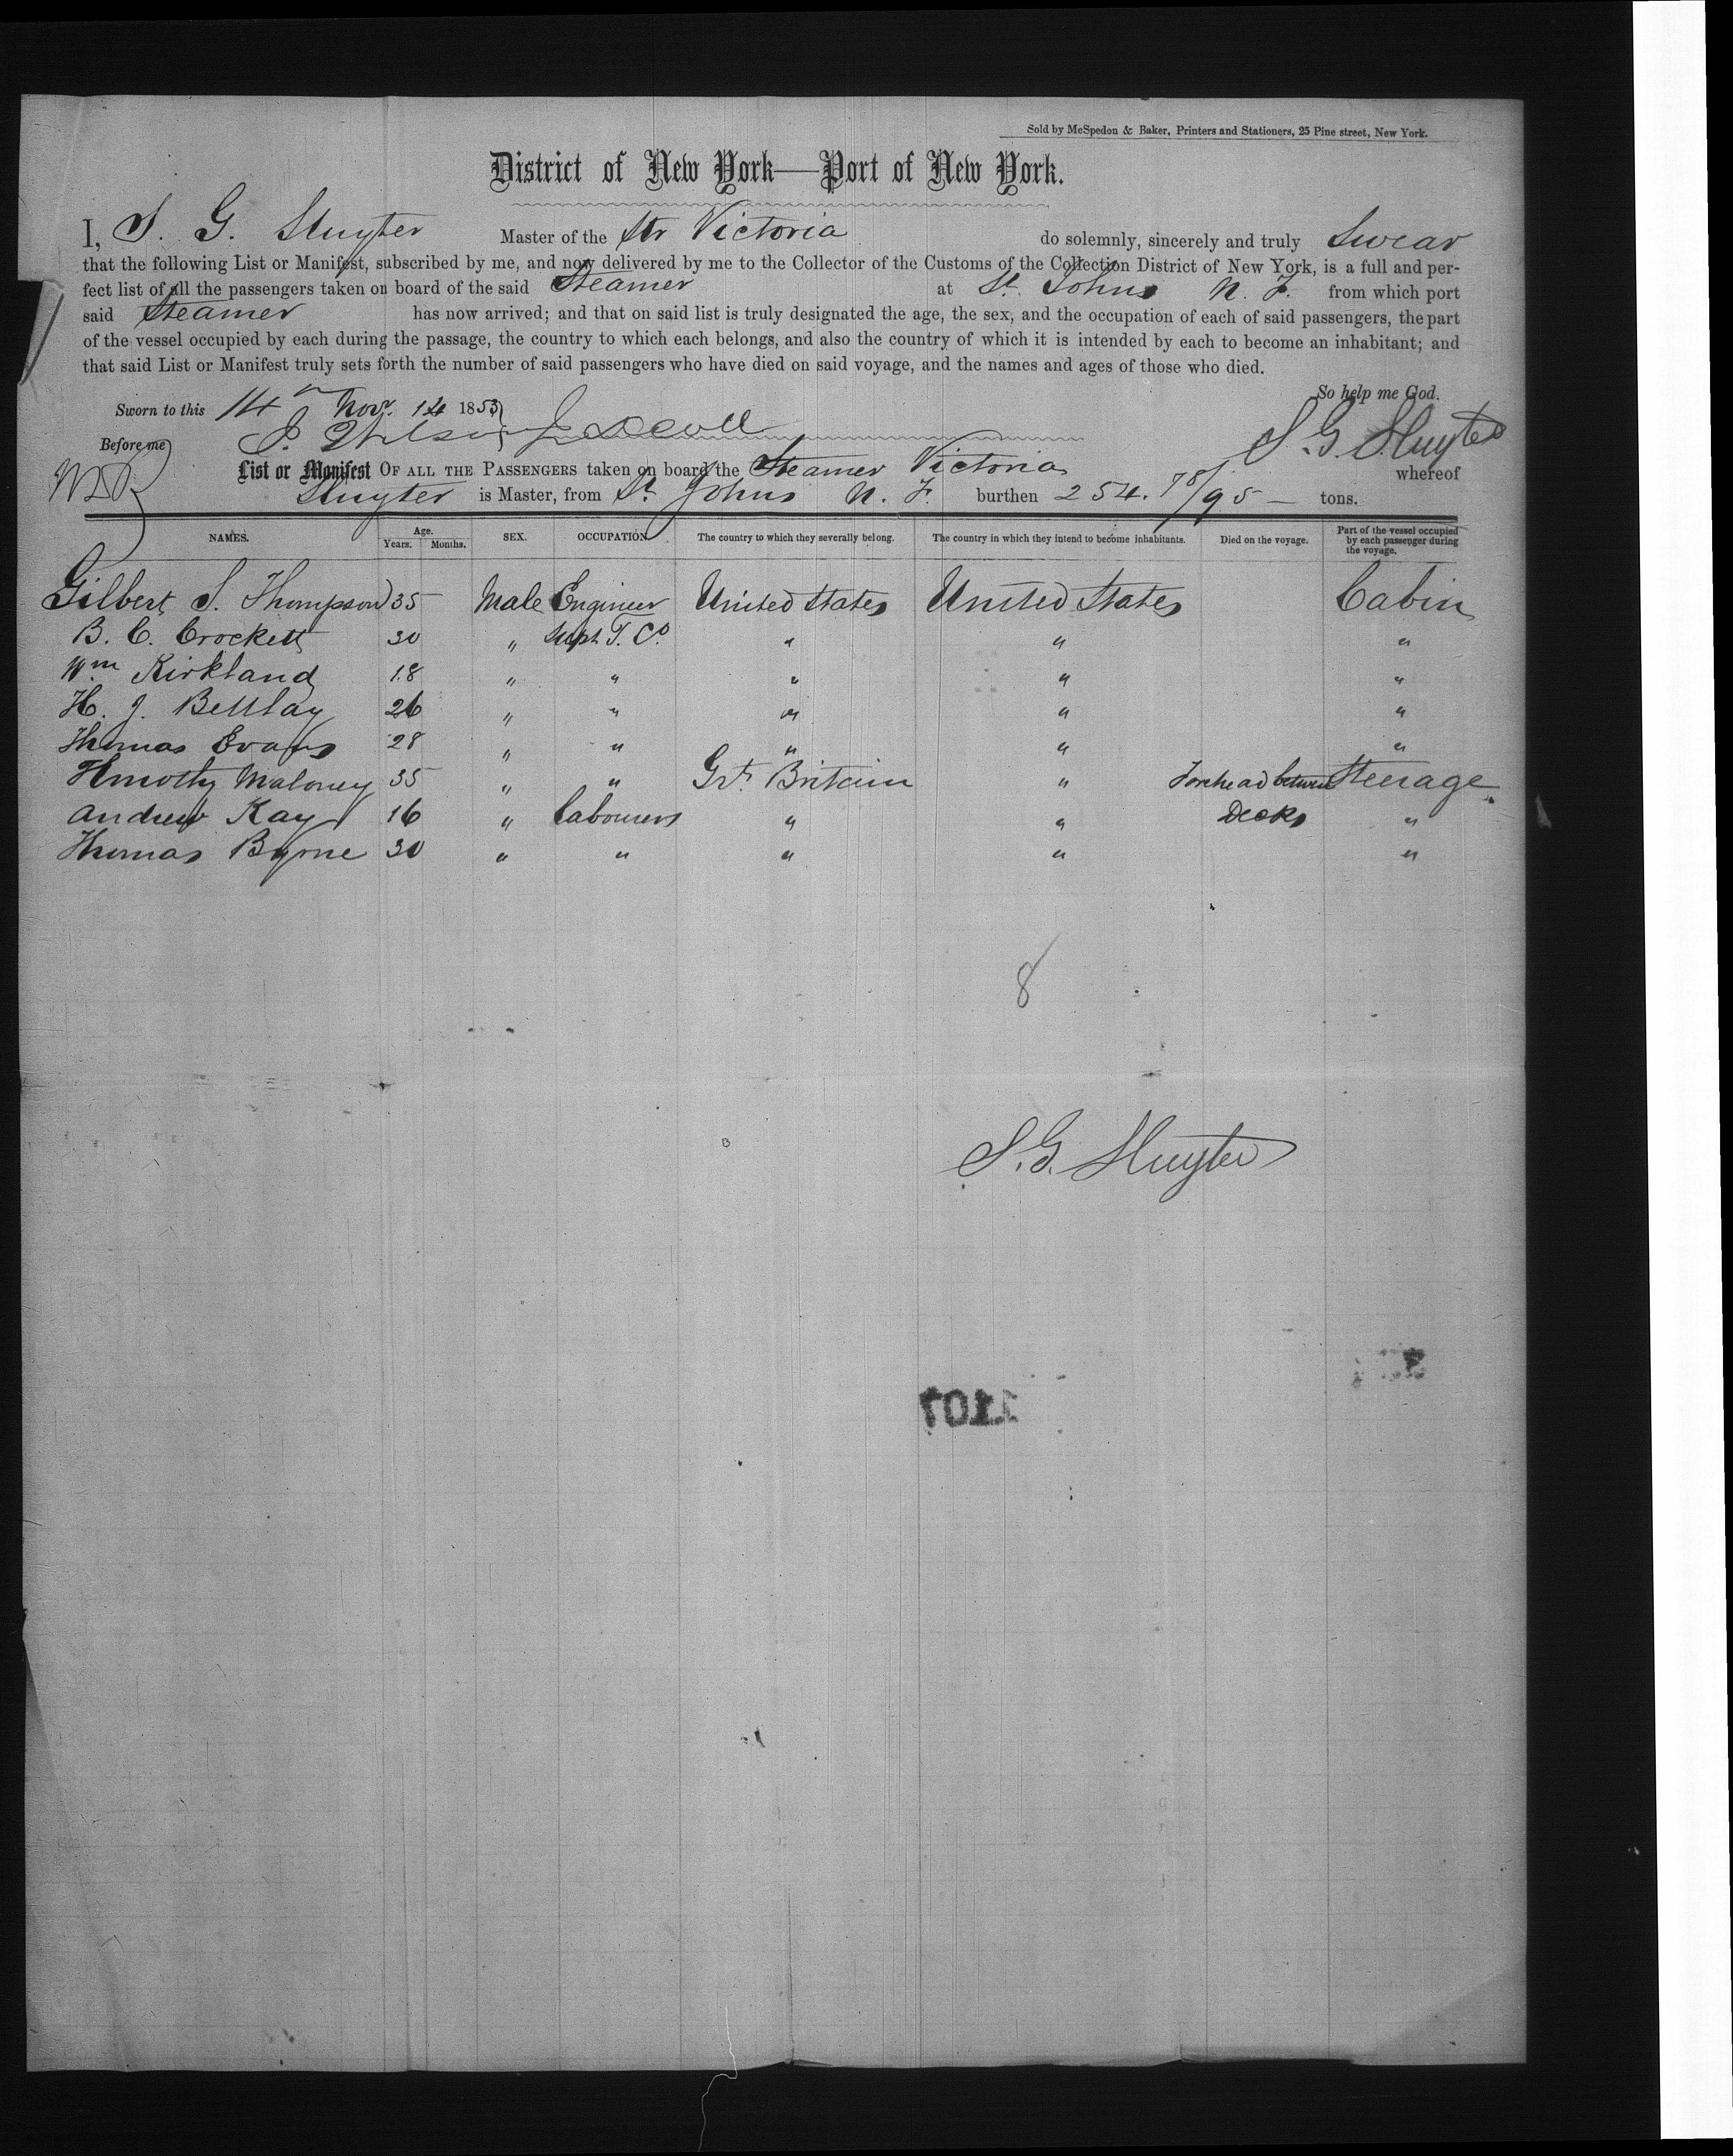 Sold by McSpedon & Baker, Printers and Stationers, 25 Pine street, New York.
District of New York—Port of New York.
I, S. G. Sluyter Master of the Str Victoria do solemnly, sincerely and truly Swear
that the following List or Manifest, subscribed by me, and now delivered by me to the Collector of the Customs of the Collection District of New York, is a full and per-
fect list of all the passengers taken on board of the said Steamer at St Johns N. F. from which port
said Steamer has now arrived; and that on said list is truly designated the age, the sex, and the occupation of each of said passengers, the part
of the vessel occupied by each during the passage, the country to which each belongs, and also the country of which it is intended by each to become an inhabitant; and
that said List or Manifest truly sets forth the number of said passengers who have died on said voyage, and the names and ages of those who died.
So help me God.
Sworn to this 14th Novr. 14 1853
S. G. Sluyter
Before me
List or Manifest OF ALL THE PASSENGERS taken on board the Steamer Victoria whereof
Sluyter is Master, from St Johns N. F. burthen 254. 78/95 — tons.
NAMES. Age. Years. Months. SEX. OCCUPATION. The country to which they severally belong. The country in which they intend to become inhabitants. Died on the voyage. Part of the vessel occupied by each passenger during the voyage.
Gilbert S. Thompson 35 Male Engineer United States United States Cabin
B. C. Crockett 30 " Supt T. Co. " " "
Wm Kirkland 18 " " " " "
H. J. 26 " " " " "
Thomas Evans 28 " " " " "
Timothy Maloney 35 " " Grt. Britain " Forehead between Steerage
Andrew Kay 16 " Labourers " " Decks "
Thomas Byrne 30 " " " " "
8
S. G. Sluyter